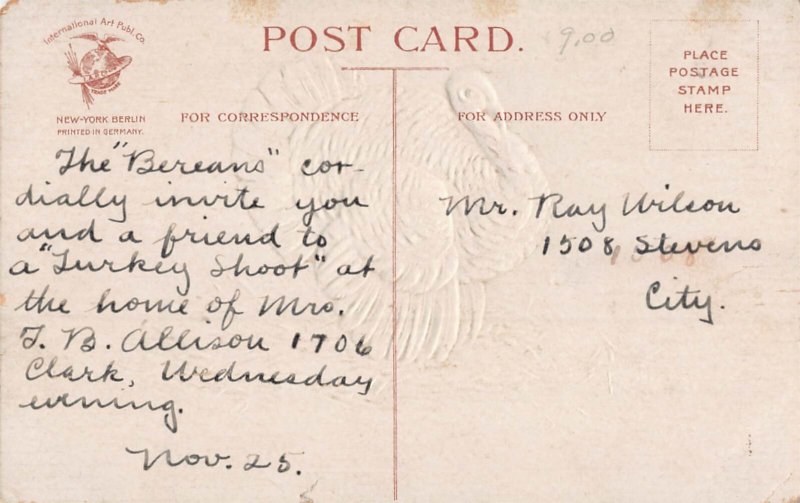 International Art Publ. Co.
TRADE MARK
NEW-YORK BERLIN
PRINTED IN GERMANY.
POST CARD.
9.00
PLACE
POSTAGE
STAMP
HERE.
FOR CORRESPONDENCE
The "Bereans" cor-
dially invite you
and a friend to
a "Turkey Shoot" at
the home of Mrs.
T. B. Allison 1706
Clark, Wednesday
evening.
Nov. 25.
FOR ADDRESS ONLY
Mr. Ray Wilson
1508 Stevens
City.